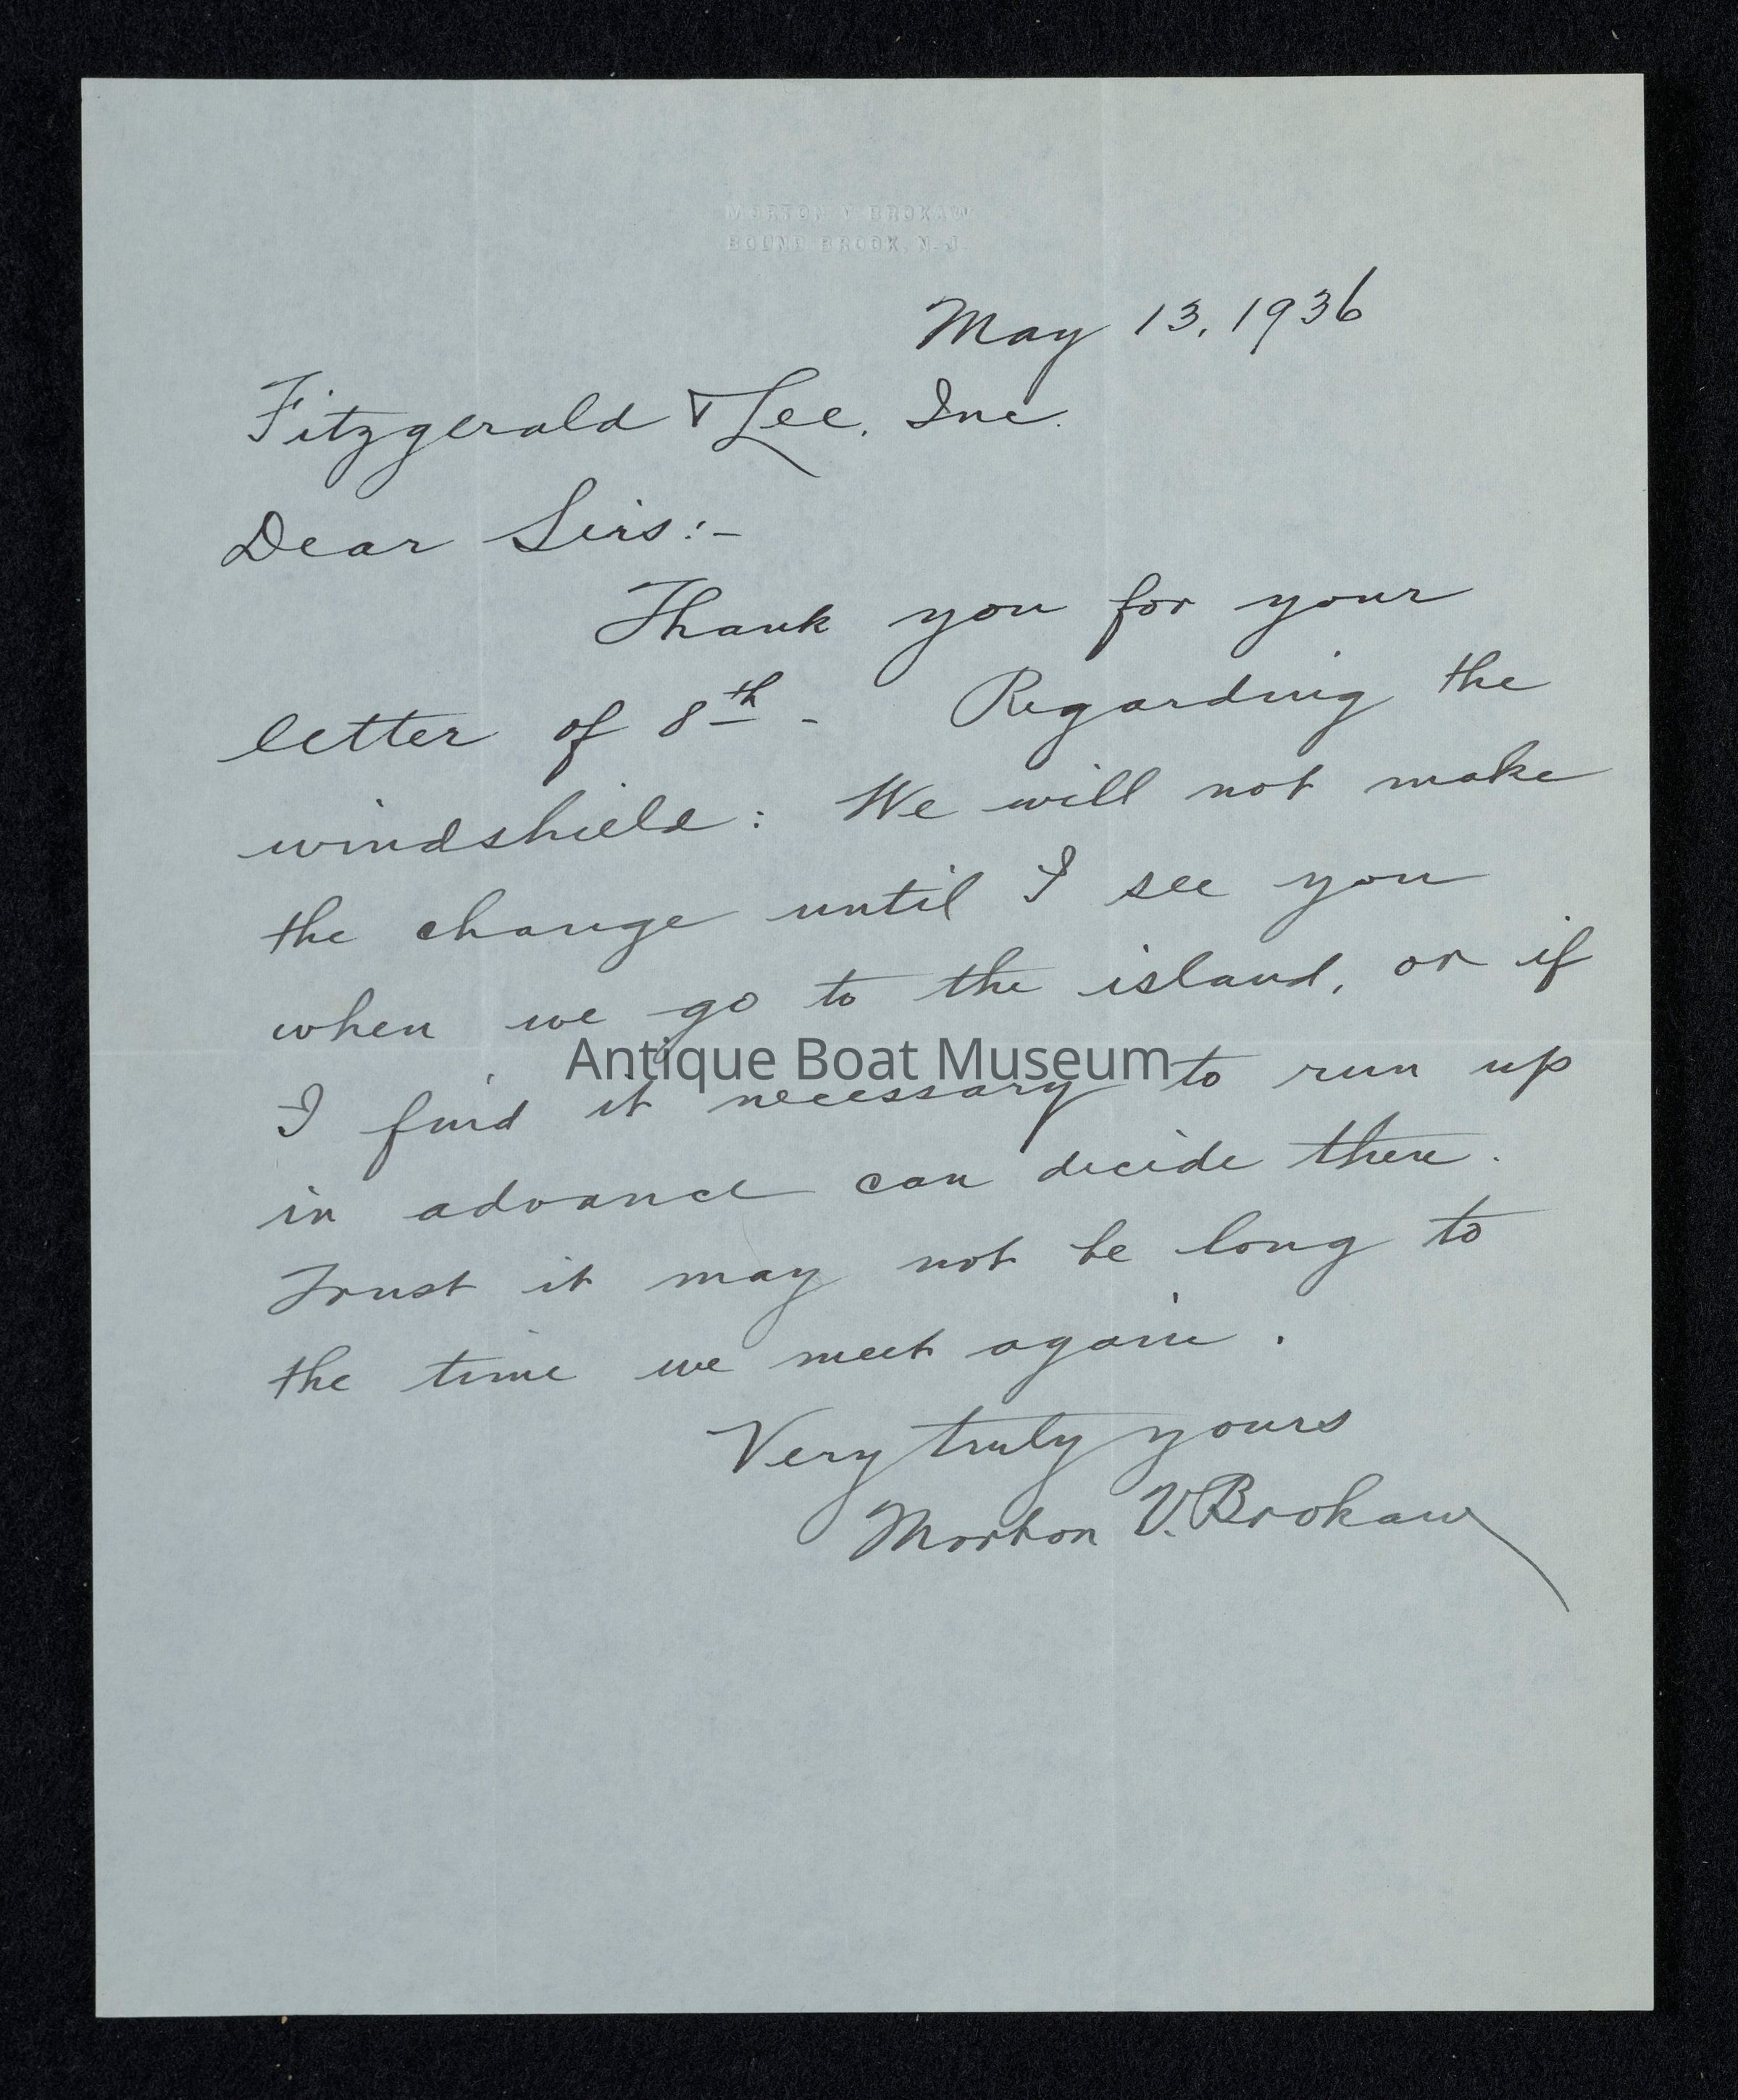 MORTON V BROKAW
BOUND BROOK, N. J.
May 13, 1936
Fitzgerald & Lee, Inc.
Dear Sirs:-
Thank you for your
letter of 8th - Regarding the
windshield: We will not make
the change until I see you
when we go to the island, or if
Antique Boat Museum
I find it necessary to run up
in advance can decide then.
Trust it may not be long to
the time we meet again.
Very truly yours
Morton V. Brokaw